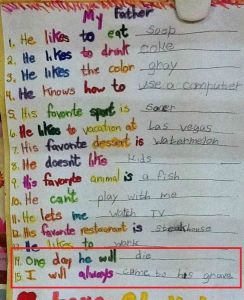 My Father
1. He likes to eat soop
2. He likes to drink coke
3. He likes the color gray
4. He knows how to use a computer
5. His favorite sport is Socer
6. He likes to vacation at Las vegas
7. His favorite dessert is watermelon
8. He doesnt like kids
9. His favorite animal is a fish
10. He can't play with me
11. He lets me watch TV
12. His favorite restaurant is steakhouse
13. He likes to work
14. One day he will die
15. I will always come to his grave